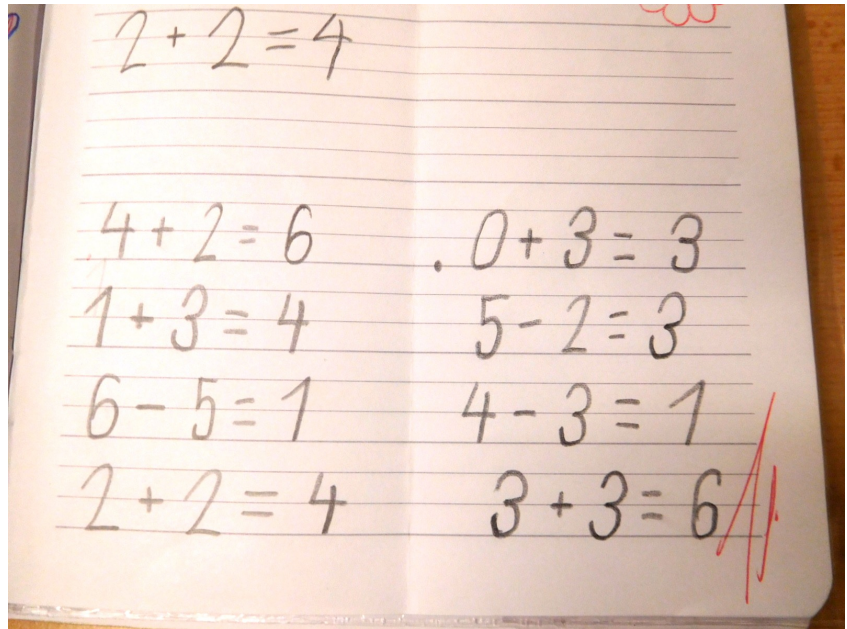 2 + 2 = 4
4 + 2 = 6
1 + 3 = 4
6 - 5 = 1
2 + 2 = 4
. 0 + 3 = 3
5 - 2 = 3
4 - 3 = 1
3 + 3 = 6